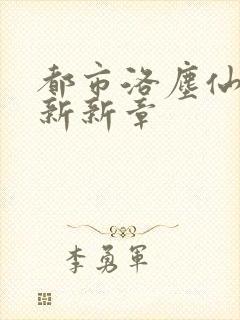 都市洛塵仙
新新章
李勇軍